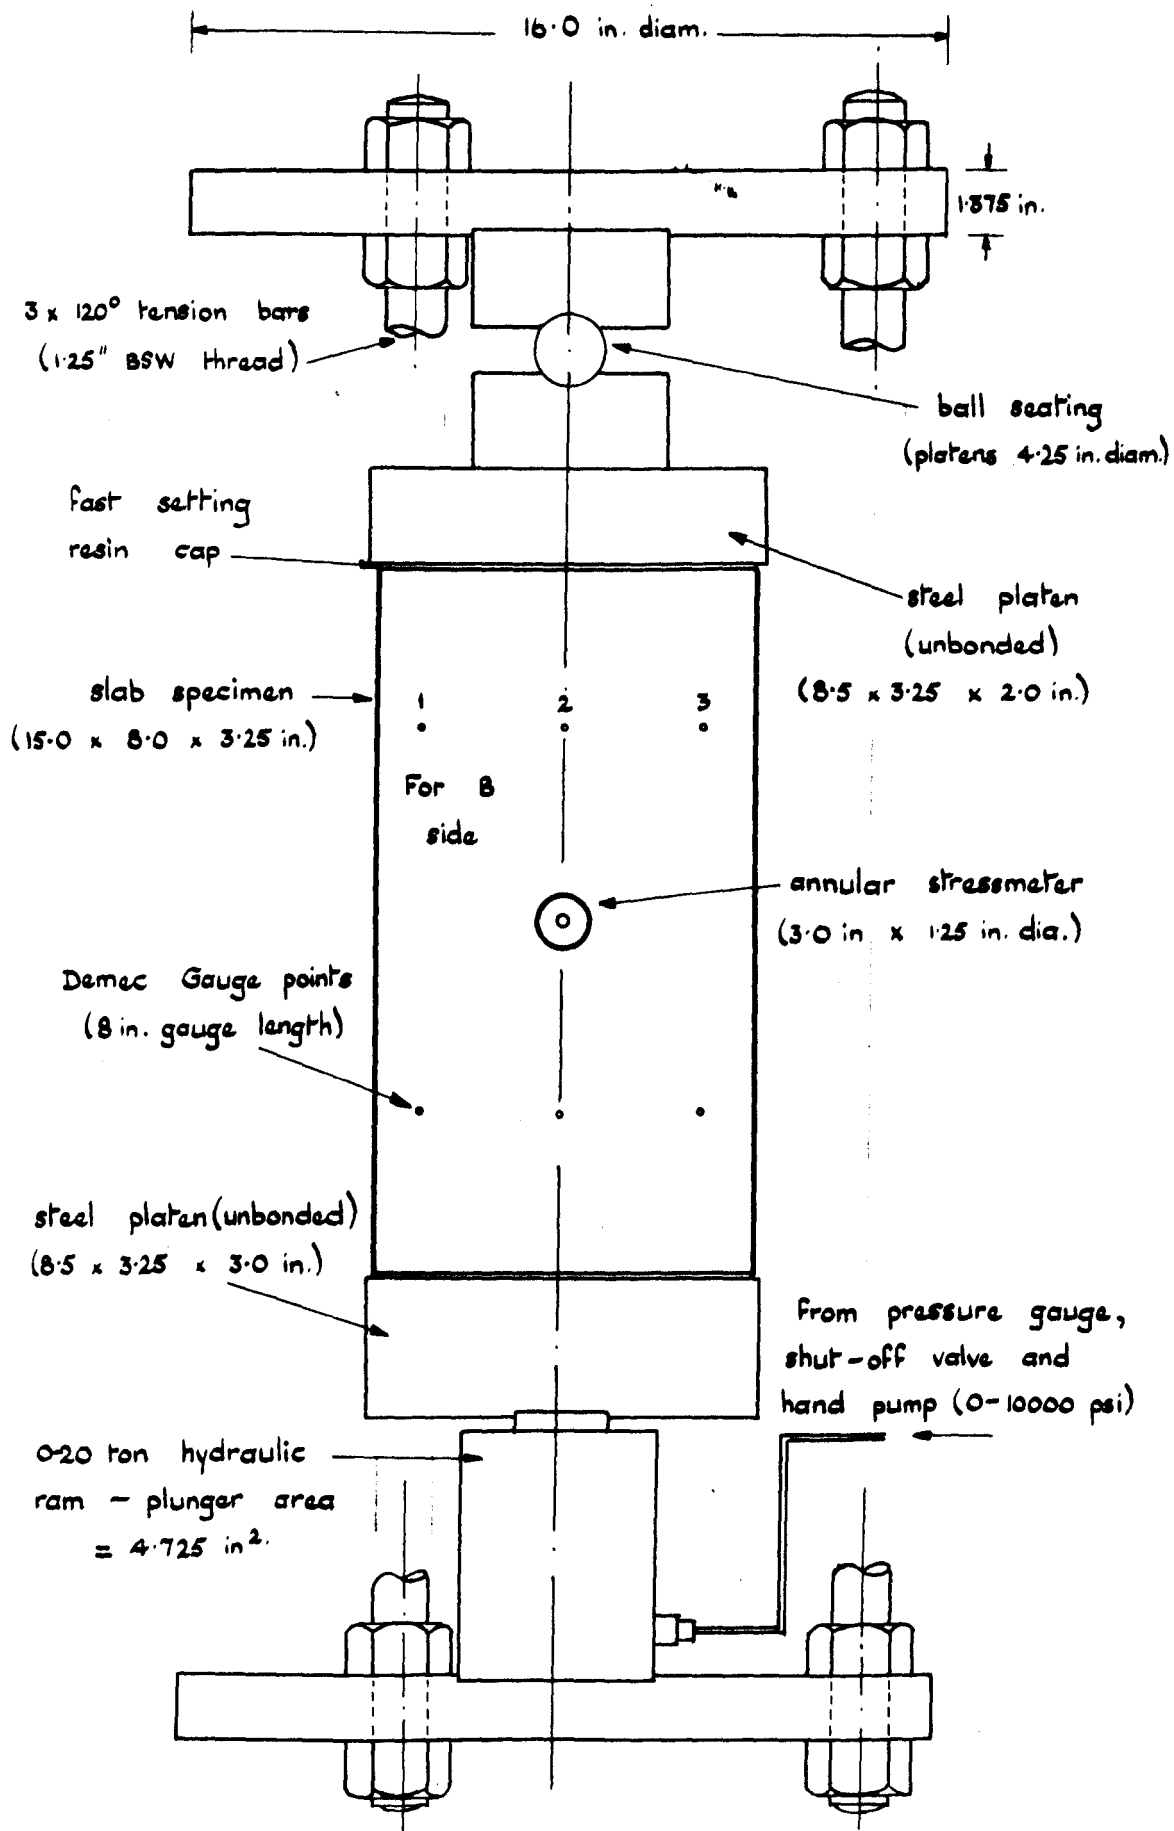 16.0 in. diam.
1.375 in.
3 x 120° tension bars
(1.25" BSW thread)
ball seating
(platens 4.25 in. diam.)
fast setting
resin cap
steel platen
(unbonded)
(8.5 x 3.25 x 2.0 in.)
slab specimen
(15.0 x 8.0 x 3.25 in.)
1 2 3
For B
side
annular stressmeter
(3.0 in x 1.25 in. dia.)
Demec Gauge points
(8 in. gauge length)
steel platen (unbonded)
(8.5 x 3.25 x 3.0 in.)
From pressure gauge,
shut-off valve and
hand pump (0-10000 psi)
0-20 ton hydraulic
ram - plunger area
= 4.725 in².